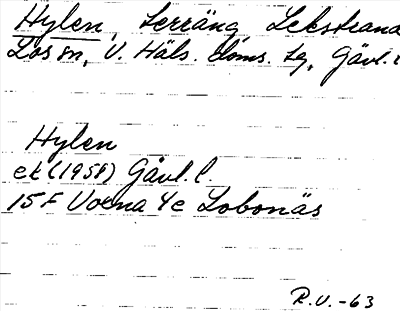 Hylen, terräng, Lekstrand
Los sn, V. Häls. doms. lg, Gävl. l
Hylen
ek (1958) Gävl. l.
15 F Voxna 4e Lobonäs
R.V. -63